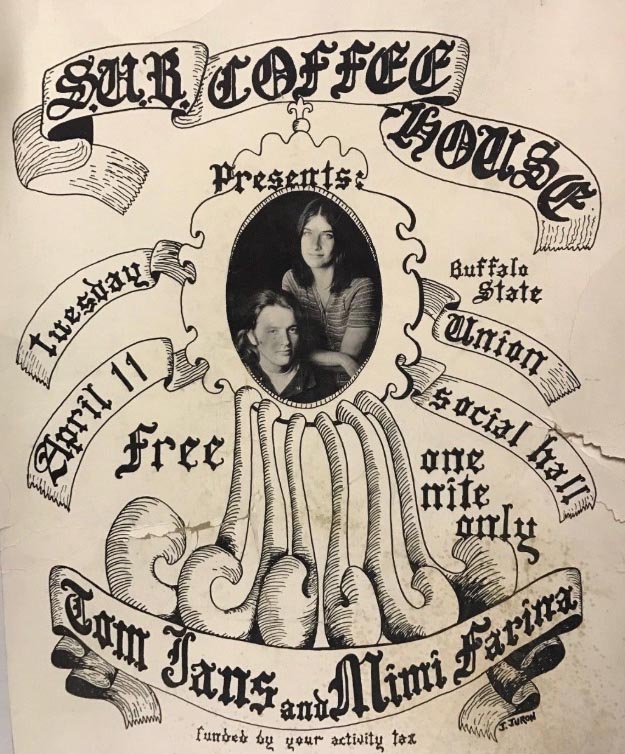 S.U.B. COFFEE
HOUSE
Presents:
tuesday
April 11
Buffalo
State
Union
social hall
Free
one
nite
only
Tom Jans and Mimi Farina
J. JURON
funded by your activity tax